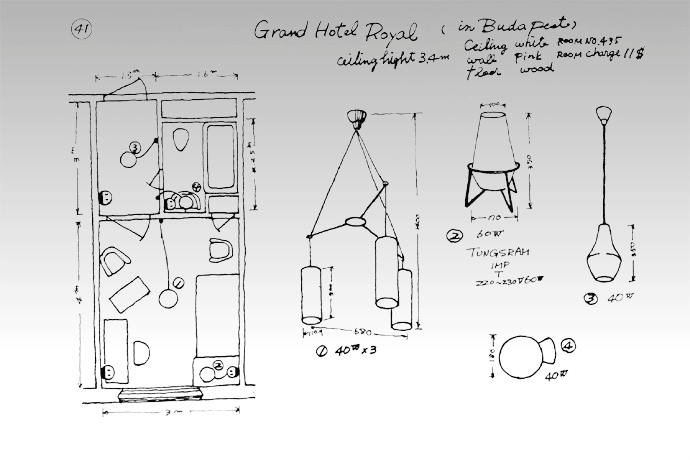 41
Grand Hotel Royal (in Budapest)
ceiling hight 3.4m
Ceiling white ROOM NO. 435
wall pink ROOM charge 11$
floor wood
1.5m
1.6m
3m
3
4
1
2
3m
680
① 40W x 3
100
350
170
② 60W
TUNGSRAM
IMP
T
220~230V 60W
③ 40W
180
④
40W